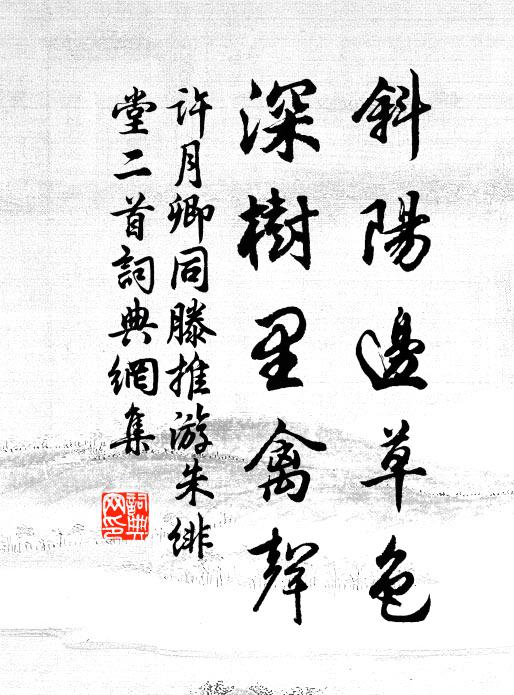 斜陽邊草色
深樹里禽聲
許月卿同滕推游朱緋
堂二首詞典網集
詞典
网印